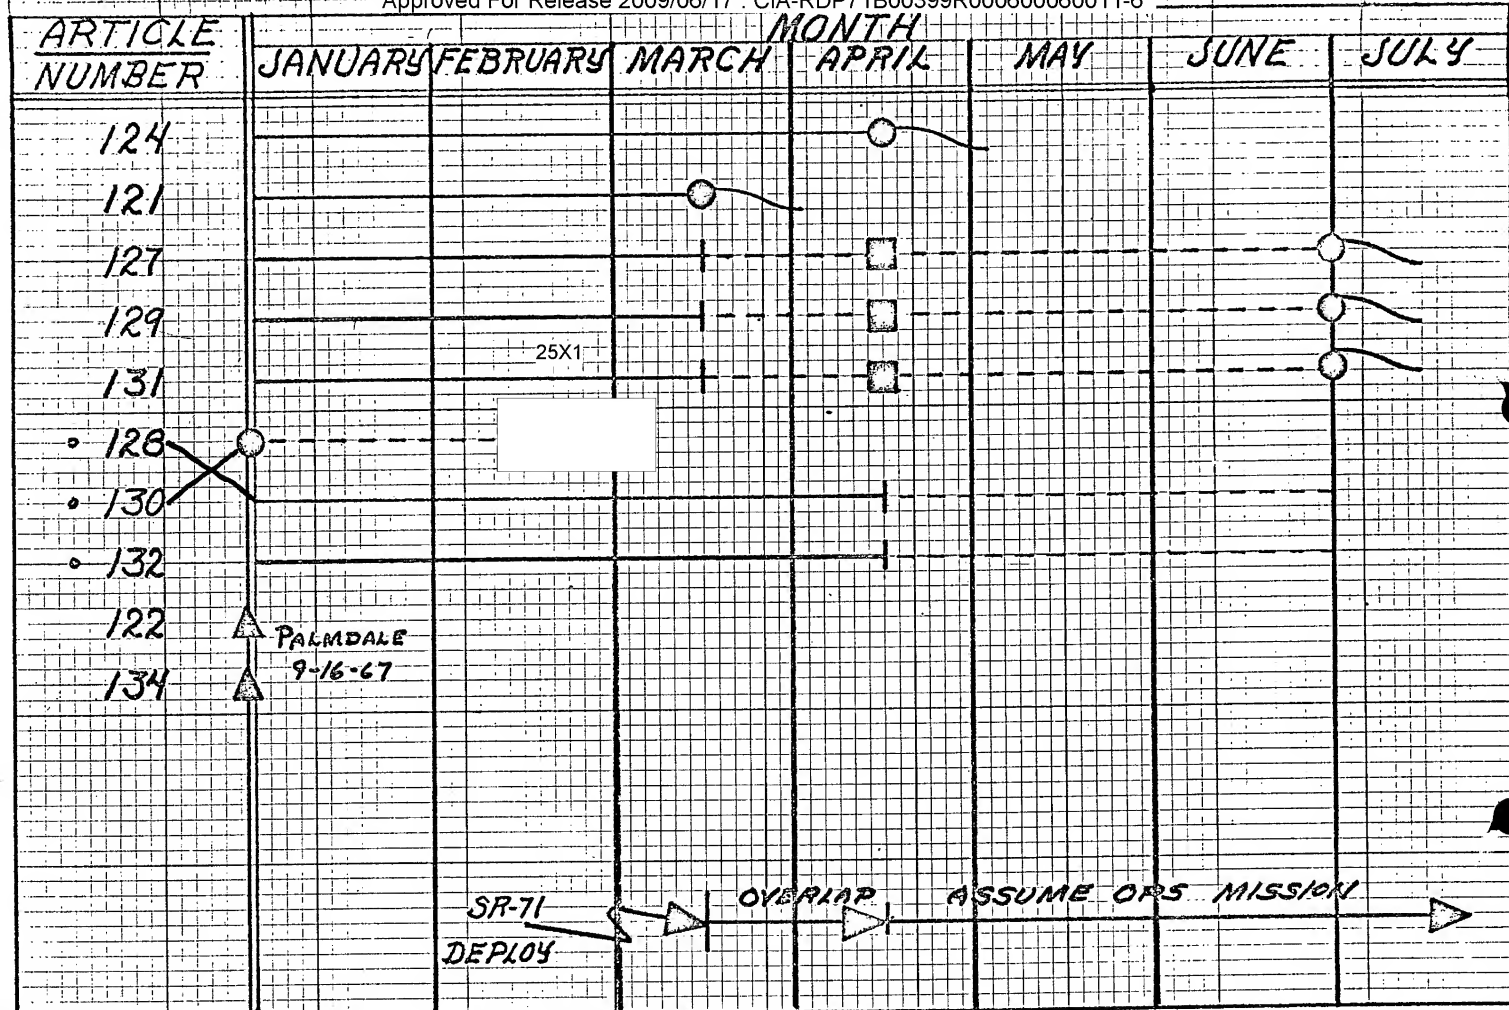 Approved For Release 2009/06/17 : CIA-RDP71B00399R000600060011-6
ARTICLE
NUMBER
MONTH
JANUARY FEBRUARY MARCH APRIL MAY JUNE JULY
124
121
127
129
25X1
131
128
130
132
122
PALMDALE
9-16-67
134
OVERLAP ASSUME OPS MISSION
SR-71
DEPLOY